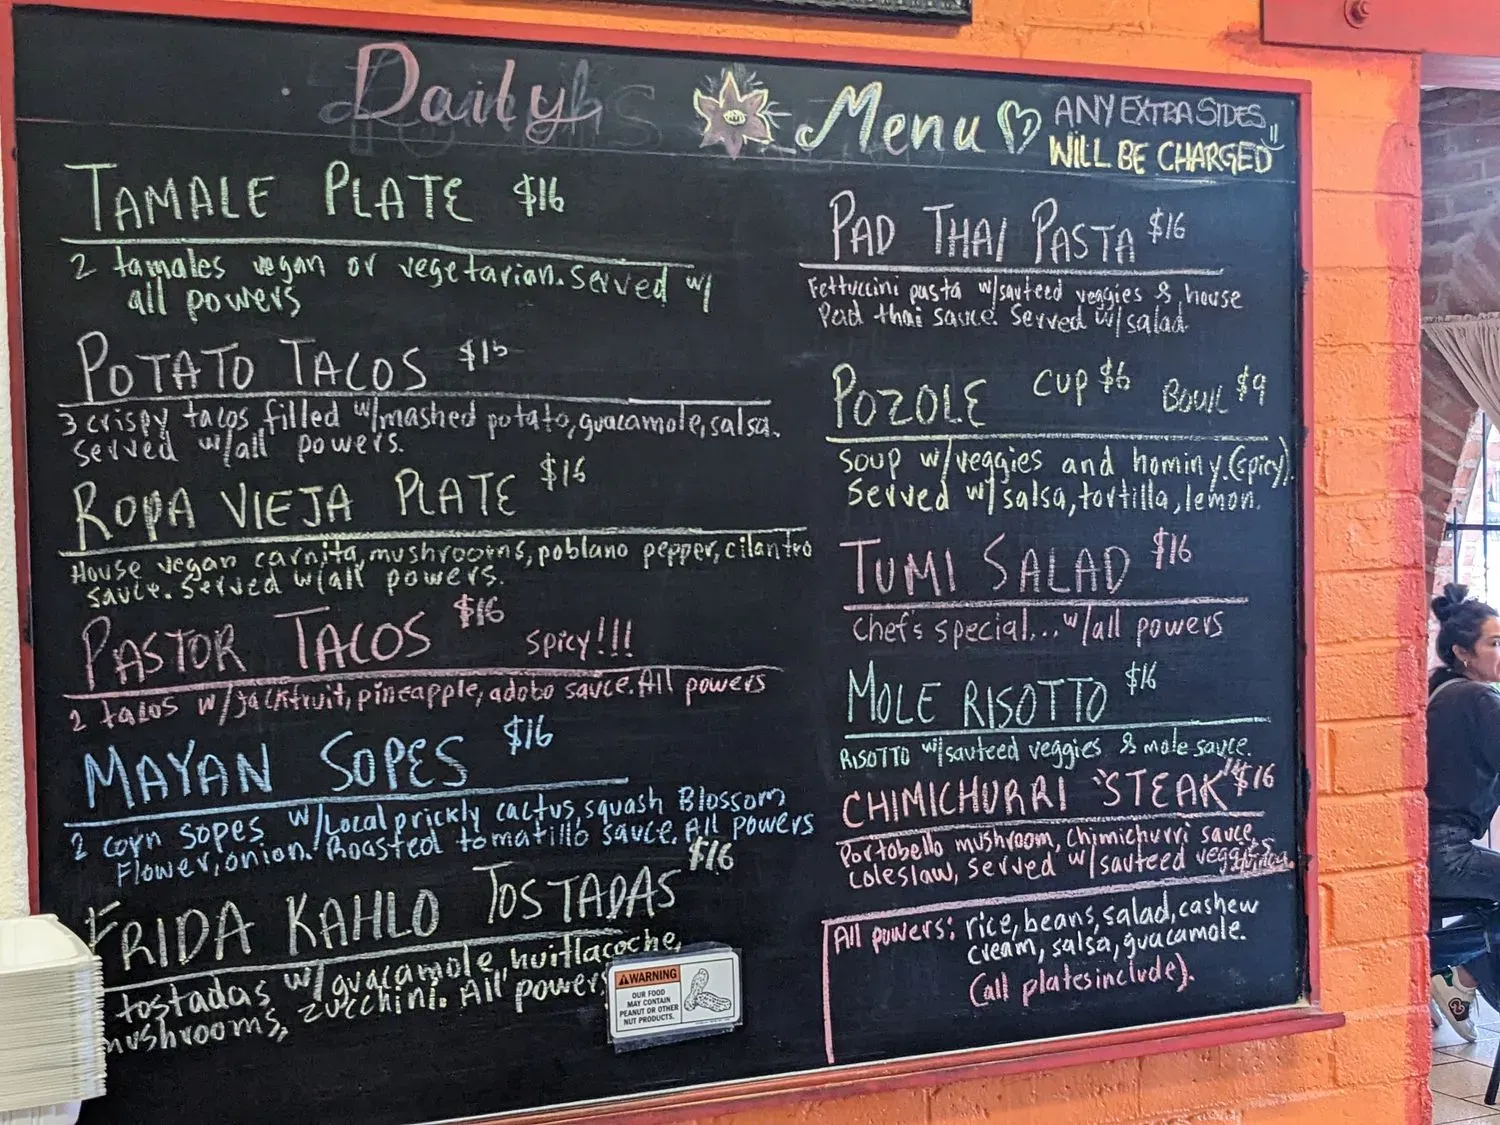 Daily Menu
ANY EXTRA SIDES
WILL BE CHARGED
TAMALE PLATE $16
2 tamales vegan or vegetarian. Served w/
all powers
POTATO TACOS $16
3 crispy tacos filled w/mashed potato, guacamole, salsa.
Served w/all powers.
ROPA VIEJA PLATE $16
House vegan carnita, mushrooms, poblano pepper, cilantro
sauce. Served w/all powers.
PASTOR TACOS $16 Spicy!!!
2 tacos w/jackfruit, pineapple, adobo sauce. All powers
MAYAN SOPES $16
2 corn sopes w/Local prickly cactus, squash Blossom
Flower, onion. Roasted tomatillo sauce. All powers
FRIDA KAHLO TOSTADAS $16
tostadas w/guacamole, huitlacoche,
mushrooms, zucchini. All powers
WARNING
OUR FOOD
MAY CONTAIN
PEANUT OR OTHER
NUT PRODUCTS.
PAD THAI PASTA $16
Fettuccini pasta w/sauteed veggies & house
Pad thai sauce. Served w/salad.
POZOLE CUP $6 BOWL $9
soup w/veggies and hominy. (spicy).
Served w/salsa, tortilla, lemon.
TUMI SALAD $16
Chef's special... w/all powers
MOLE RISOTTO $16
RISOTTO w/sauteed veggies & mole sauce.
CHIMICHURRI "STEAK" $16
Portobello mushroom, Chimichurri sauce
coleslaw, served w/sauteed veggies
quinoa.
All powers: rice, beans, salad, cashew
cream, salsa, guacamole.
(all plates include).